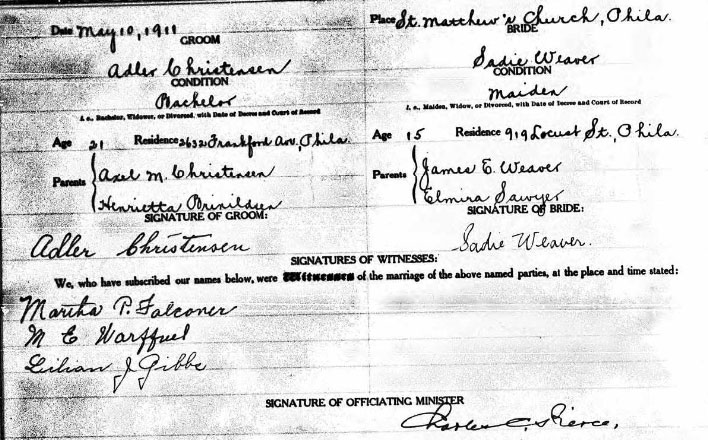 Date May 10, 1911 Place St. Matthew's Church, Phila.
GROOM BRIDE
Adler Christensen Sadie Weaver
CONDITION CONDITION
Bachelor Maiden
I. e., Bachelor, Widower, or Divorced, with Date of Decree and Court of Record I. e., Maiden, Widow, or Divorced, with Date of Decree and Court of Record
Age 21 Residence 2632 Frankford Av., Phila. Age 15 Residence 919 Locust St., Phila.
Parents Axel M. Christensen James E. Weaver
Henrietta Brinildsen Parents Elmira Sawyer
SIGNATURE OF GROOM: SIGNATURE OF BRIDE:
Adler Christensen Sadie Weaver.
SIGNATURES OF WITNESSES:
We, who have subscribed our names below, were Witnesses of the marriage of the above named parties, at the place and time stated:
Martha P. Falconer
M E Warffuel
Lilian J Gibbs
SIGNATURE OF OFFICIATING MINISTER
Charles C. Pierce,